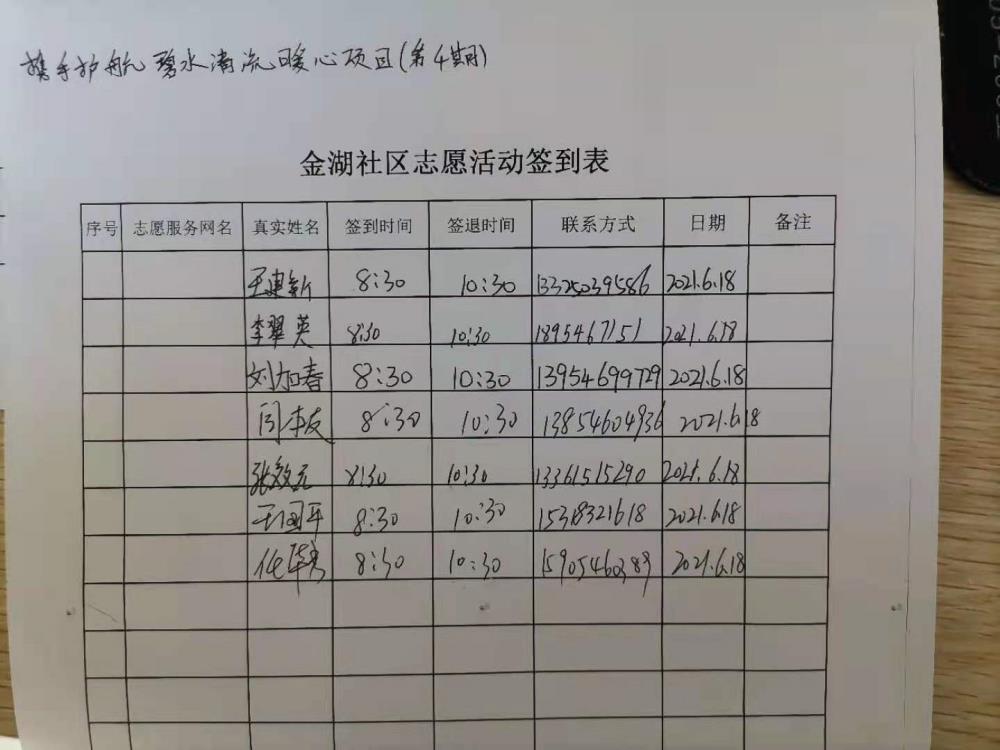 携手护航碧水清流暖心项目(第4期)
金湖社区志愿活动签到表
序号 志愿服务网名 真实姓名 签到时间 签退时间 联系方式 日期 备注
王建新 8:30 10:30 13325039586 2021.6.18
李翠英 8:30 10:30 1895467151 2021.6.18
刘加春 8:30 10:30 13954699729 2021.6.18
闫本友 8:30 10:30 13854604936 2021.6.18
张效元 8:30 10:30 13361515290 2021.6.18
王国平 8:30 10:30 15318321618 2021.6.18
任 8:30 10:30 2021.6.18